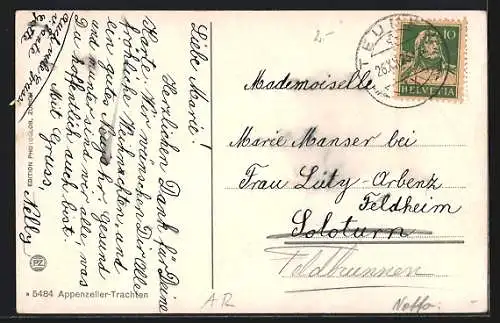 Liebe Marie!
Herzlichen Dank für Deine
Karte. Wir wünschen Dir Alle
fröhliche Weihnachten, und
ein gutes Neujahr. Gesund
und munter sind wir alle, was
Du hoffentlich auch bist.
Mit Gruss,
Nelly
EDITION PHOTOGLOB, ZÜRICH
PZ
5484 Appenzeller-Trachten
TEUFEN
10
HELVETIA
Mademoiselle
Marie Manser bei
Frau Lüty-Arbenz
Feldheim
Soloturn
Feldbrunnen
2.-
AR
Netto.